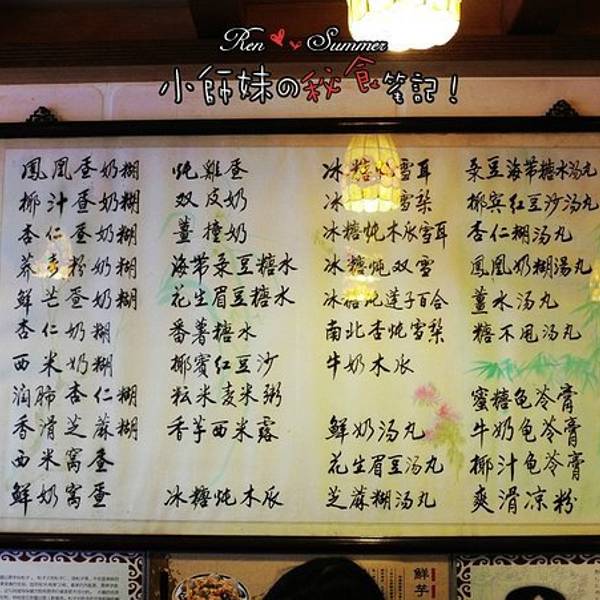 Ren Summer
小師妹の秘食笔記！
鳳凰蛋奶糊
椰汁蛋奶糊
杏仁蛋奶糊
荞麦粉奶糊
鮮芒蛋奶糊
杏仁奶糊
西米奶糊
润肺杏仁糊
香滑芝蔴糊
西米窝蛋
鮮奶窝蛋
炖雞蛋
双皮奶
薑撞奶
海带菉豆糖水
花生眉豆糖水
番薯糖水
椰賓红豆沙
粘米麦米粥
香芋西米露
冰糖炖木瓜
冰糖炖雪耳
冰糖 雪梨
冰糖炖木瓜雪耳
冰糖炖双雪
冰糖炖莲子百合
南北杏炖雪梨
牛奶木瓜
鮮奶汤丸
花生眉豆汤丸
芝蔴糊汤丸
菉豆海带糖水汤丸
椰宾红豆沙汤丸
杏仁糊汤丸
鳳凰奶糊湯丸
薑水汤丸
糖不甩汤丸
蜜糖龟苓膏
牛奶龟苓膏
椰汁龟苓膏
爽滑凉粉
鮮芋